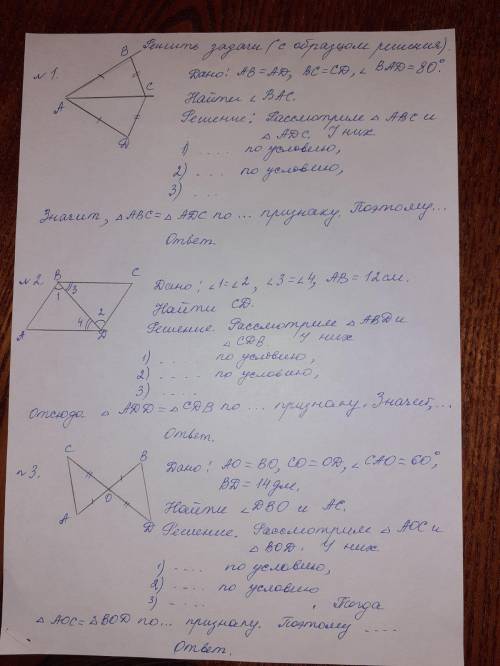 Решить задачи (с образцом решения).
№1.
B
A
C
D
Дано: AB = AD, BC = CD, ∠BAD = 80°
Найти ∠BAC.
Решение: Рассмотрим △ABC и
△ADC. У них
1) .... по условию,
2) .... по условию,
3) ....
Значит, △ABC = △ADC по ... признаку. Поэтому...
Ответ.
№2
B
C
1
3
2
4
A
D
Дано: ∠1=∠2, ∠3=∠4, AB = 12см.
Найти CD.
Решение. Рассмотрим △ABD и
△CDB. У них
1) .... по условию,
2) .... по условию,
3) ....
Отсюда △ADD = △CDB по ... признаку. Значит,...
Ответ.
№3.
C
B
O
A
D
Дано: AO = BO, CO = OD, ∠CAO = 60°,
BD = 14дм.
Найти ∠DBO и AC.
Решение. Рассмотрим △AOC и
△BOD. У них
1) .... по условию,
2) .... по условию
3) .... . Тогда
△AOC = △BOD по... признаку. Поэтому ....
Ответ.